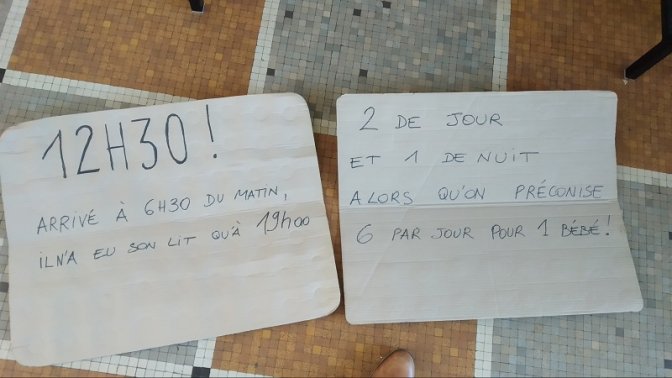 12H30!
ARRIVÉ À 6H30 DU MATIN,
IL N'A EU SON LIT QU'À 19h00
2 DE JOUR
ET 1 DE NUIT
ALORS QU'ON PRÉCONISE
6 PAR JOUR POUR 1 BÉBÉ!